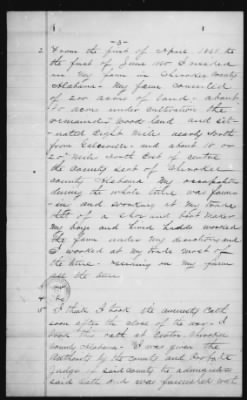 -3-
2 From the first of April 1861 to
the first of June 1865 I resided
on my farm in Cherokee County
Alabama - My farm consisted
of 200 acres of land - about
acres under cultivation the
remainder wood land and sit-
uated Eight Miles nearly North
from and about 18 or
20 miles North East of Centre
the County seat of Cherokee
county Alabama. My occupation
during the whole time was farm-
ing and working at my trade
that of a shoe and boot maker
My boys and hired hands worked
the farm under my directions and
I worked at my trade most of
the time - on my farm
all the time
3 No
4 No
5 I think I took the amnesty oath
soon after the close of the war - I
took this oath at Centre Cherokee
County Alabama - was given the
authority by the county and Probate
Judge of said county to administer
said oath and was furnished with